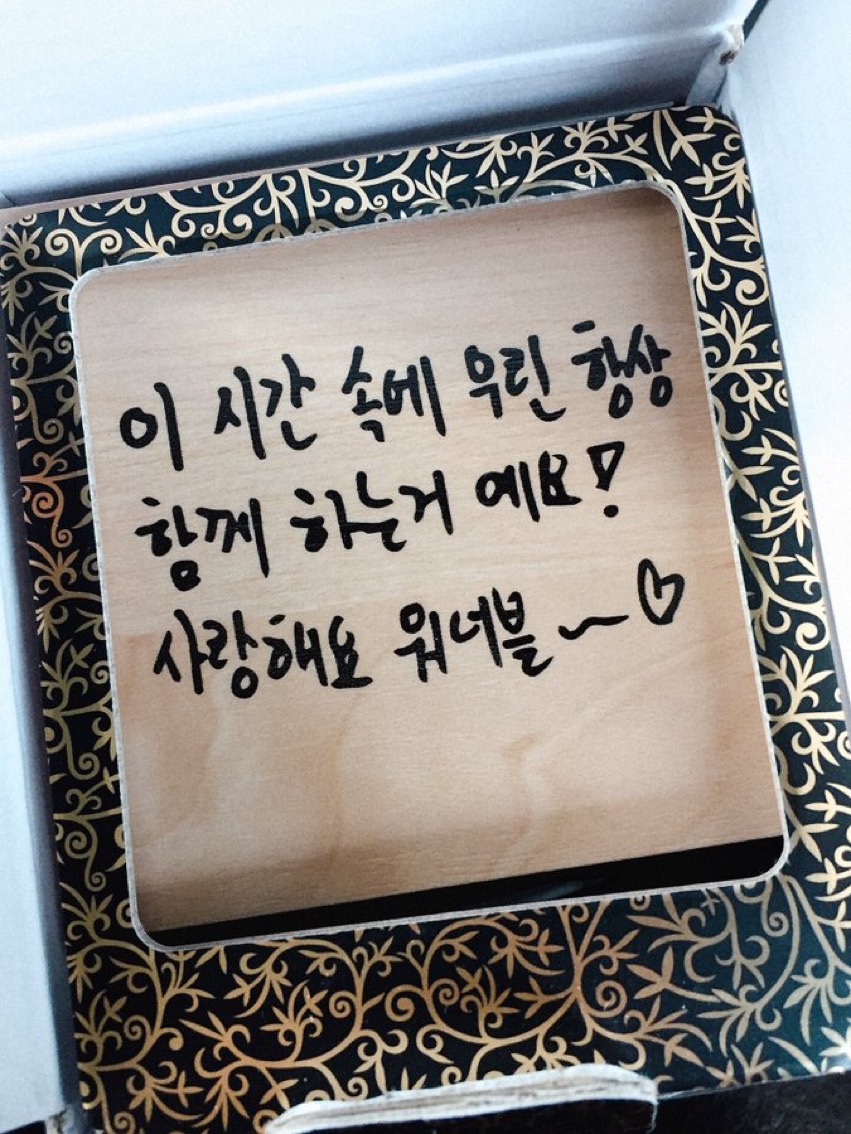 이 시간 속에 우린 항상
함께 하는거 예요!
사랑해요 워너블~♡